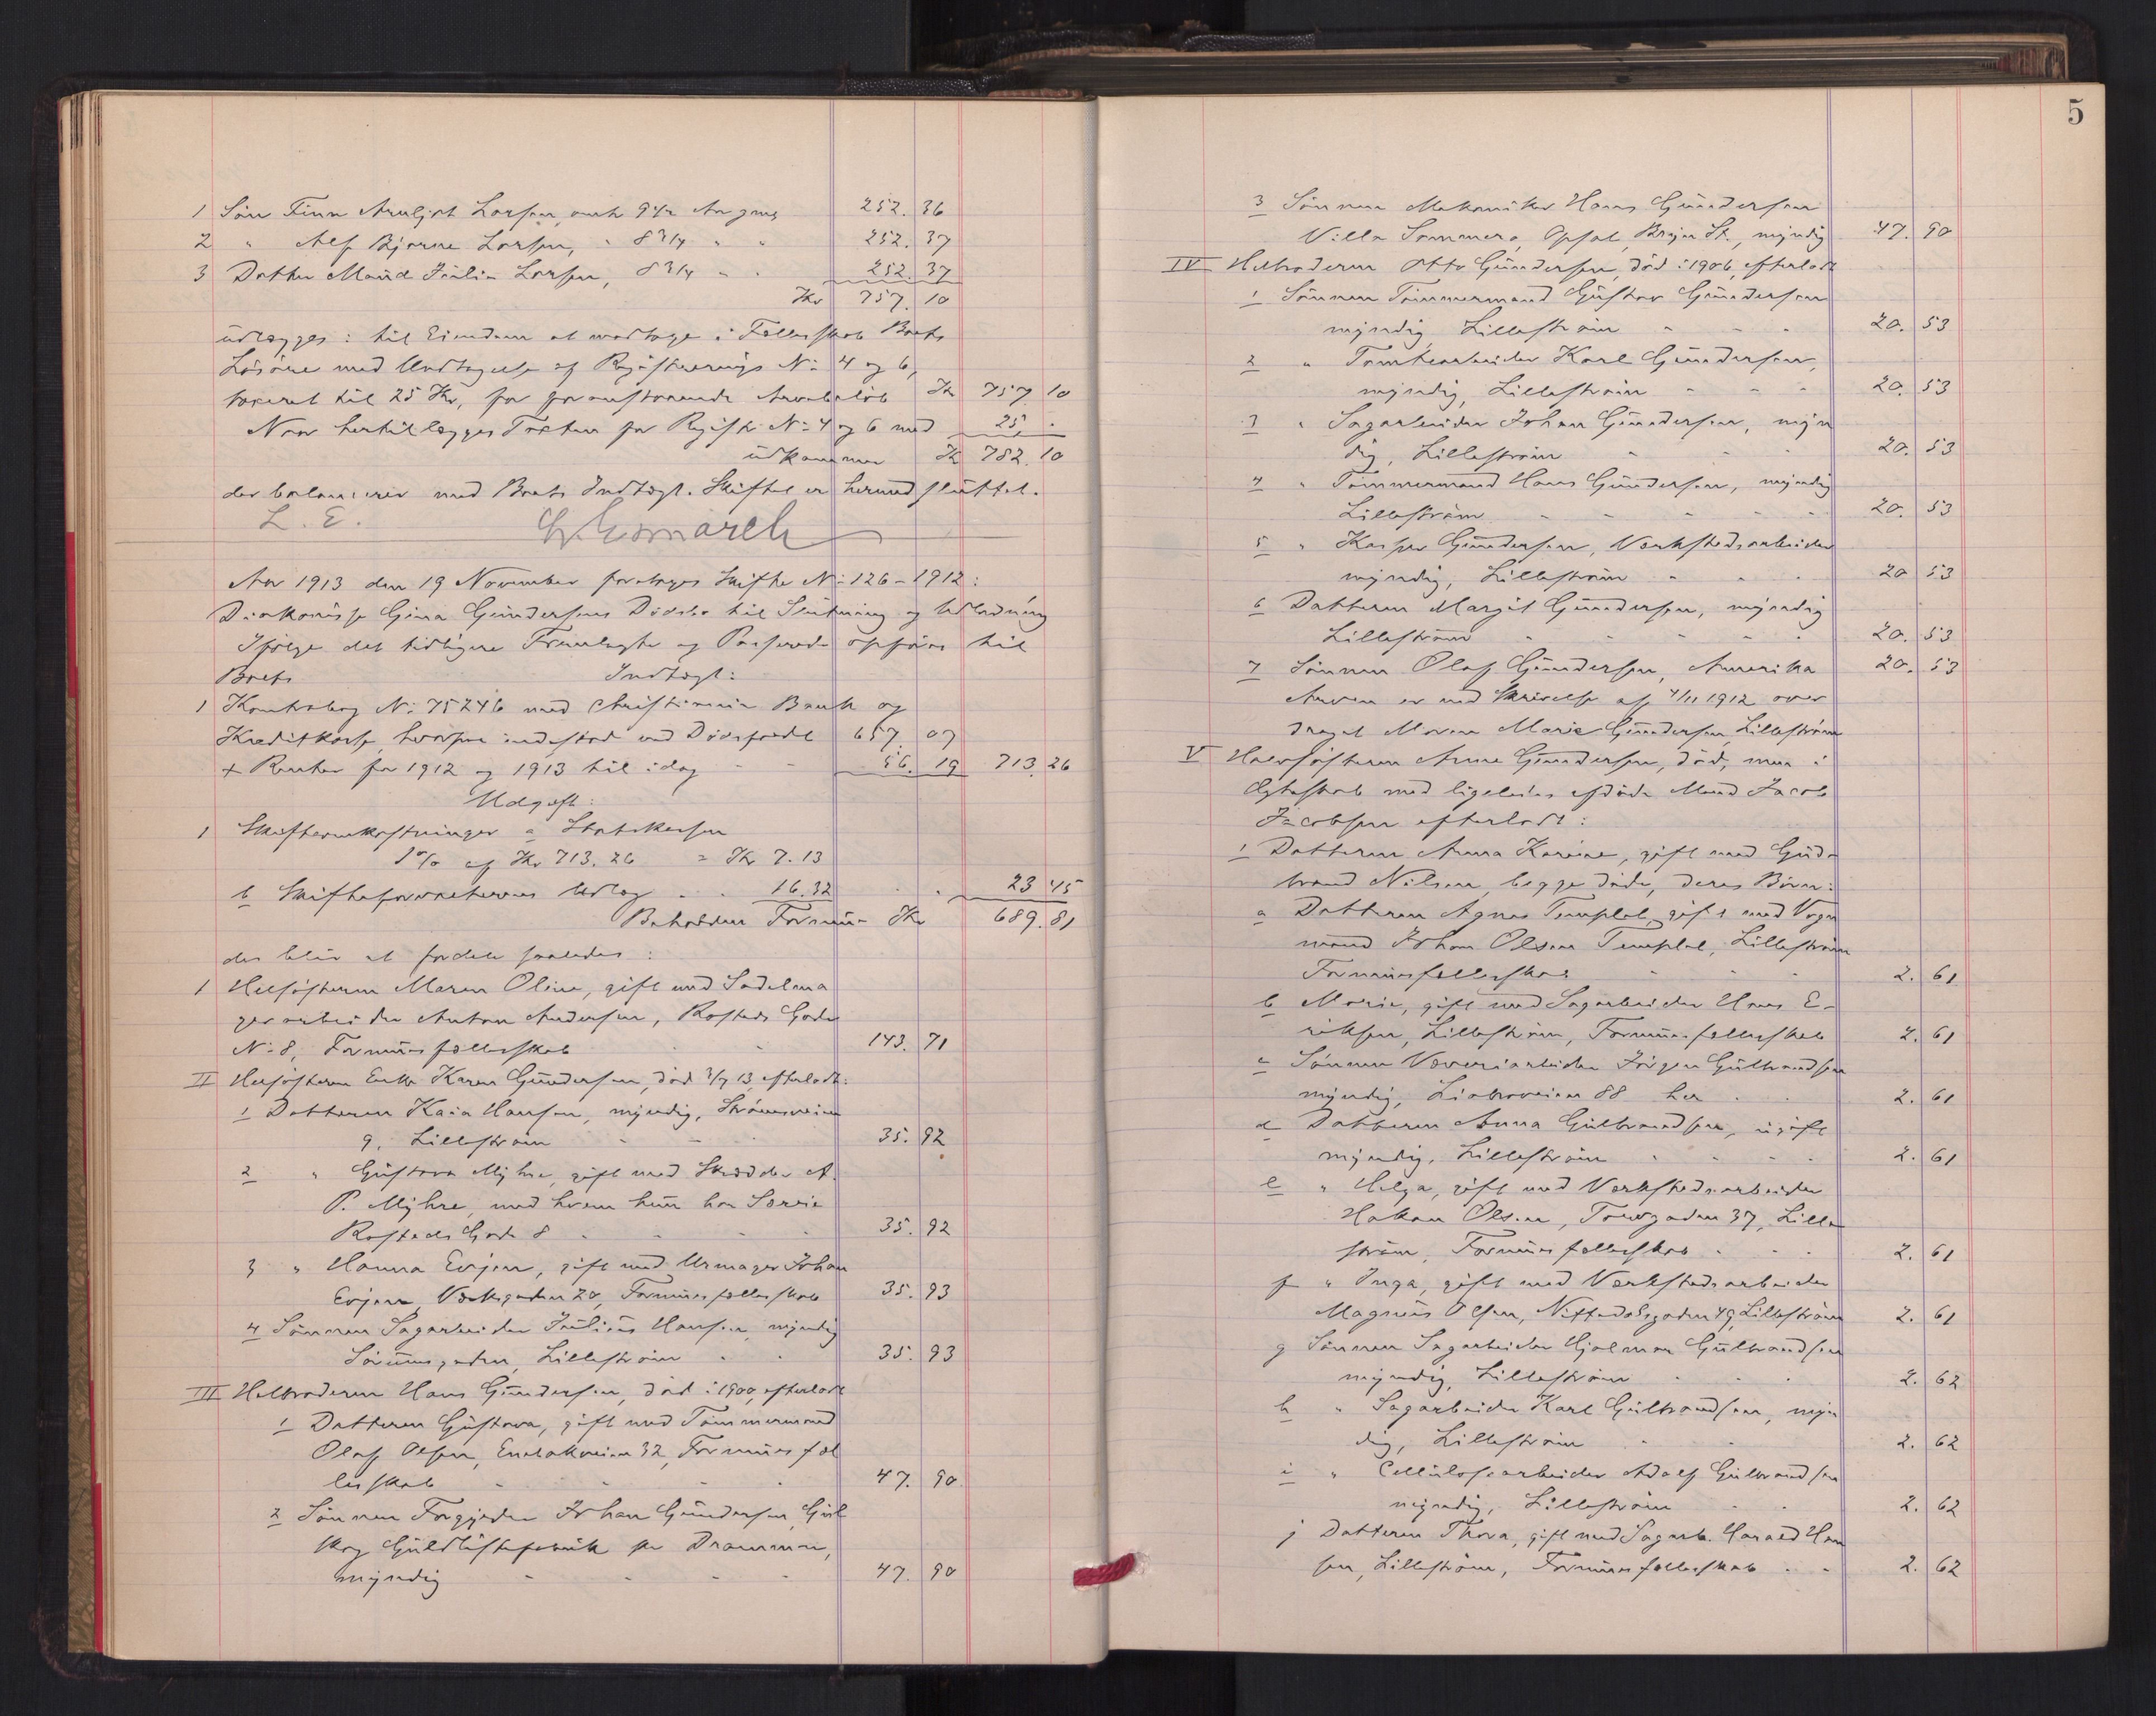 1 Søn Finn Arnljot Larsen, omtr 9 1/2 Aar gml 252. 36
2 " Alf Bjarne Larsen, " 8 3/4 " " 252. 37
3 Datter Maud Julie Larsen, 8 3/4 " " 252. 37
Kr 757. 10
udlægges: til Eiendom at modtage i Fællesskab Boets
Løsøre med Undtagelse af Registrerings No 4 og 6,
taxeret til 25 Kr, for foranstaaende Arvebeløb Kr 757 10
Naar hertil lægges Taxten for Registr. No 4 og 6 med 25 -
udkommer Kr 782. 10
der balancerer med Boets Indtægt. Skiftet er hermed sluttet.
L. E.
Aar 1913 den 19 November foretages Skifte No 126-1912:
Diakonisse Gina Gundersens Dødsbo til Slutning og Udlodning
Ifølge det tidligere Fremlagte og Passerede opføres til
Boets Indtægt:
1 Kontrabog No 75246 med Christiania Bank og
Kreditkasse, hvorpaa indestod ved Dødsfaldet 657. 07
+ Renter for 1912 og 1913 til idag - - 56. 19 713. 26
Udgift:
1 Skifteomkostninger a Statskassen
1% af Kr 713.26 = Kr 7.13
b Skifteforvalterens Udlæg - - 16.32 - - 23 45
Beholden Formue Kr 689. 81
der blir at fordele saaledes:
1 Helsøsteren Maren Oline, gift med Sadelma
gerarbeider Anton Andersen, Rosteds Gade
No 8, Formuesfællesskab - - 143. 71
II Helsøsteren Enke Karen Gundersen, død 3/7 13, efterlodt:
1 Datteren Kaia Hansen, myndig, Strømsveien
9, Lillestrøm - - - 35. 92
2 " Gustava Myhre, gift med Skrædder A.
P. Myhre, med hvem hun har Særeie
Rosteds Gade 8 - - - - 35. 92
3 " Hanna Evjen, gift med Urmager Johan
Evjen, Vækegaden 20, Formuesfællesskab 35. 93
4 Sønnen Sagarbeider Julius Hansen, myndig
Sørumsgaden, Lillestrøm - - 35. 93
III Helbroderen Hans Gundersen, død i 1900, efterlodt
1 Datteren Gustava, gift med Tømmermand
Olaf Olsen, Enebakveien 32, Formuesfæl
lesskab - - - - 47. 90
2 Sønnen Forgylder Johan Gundersen, Gul
skog Guldlistefabrik pr Drammen,
myndig - - - - 47. 90
5
3 Sønnen Mekaniker Hans Gundersen
Villa Sommero, Opsal, Bryn St., myndig 47. 90
IV Helbroderen Otto Gundersen, død i 1906, efterlodt
1 Sønnen Tømmermand Gustav Gundersen
myndig, Lillestrøm - - - 20. 53
2 " Tomtearbeider Karl Gundersen,
myndig, Lillestrøm - - - 20. 53
3 " Sagarbeider Johan Gundersen, myn
dig, Lillestrøm - - - 20. 53
4 " Tømmermand Hans Gundersen, myndig
Lillestrøm - - - - - 20. 53
5 " Kasper Gundersen, Verkstedsarbeider
myndig, Lillestrøm - - - 20 53
6 Datteren Margit Gundersen, myndig
Lillestrøm - - - - - 20. 53
7 Sønnen Olaf Gundersen, Amerika 20. 53
Arven er ved Skrivelse af 4/11 1912 over
draget Moren Marie Gundersen, Lillestrøm
V Halvsøsteren Anne Gundersen, død, men i
Ægteskab med ligeledes afdøde Mand Jacob
Jacobsen efterlodt:
1 Datteren Anna Karine, gift med Gud-
brand Nilsen, begge døde, deres Børn:
a Datteren Agnes Templet, gift med Vogn
mand Johan Olsen Templet, Lillestrøm
Formuesfællesskab - - - 2. 61
b Marie, gift med Sagarbeider Hans E-
riksen, Lillestrøm, Formuesfællesskab 2. 61
c Sønnen Væveriarbeider Jørgen Gulbrandsen
myndig, 88 her - - 2. 61
d Datteren Anna Gulbrandsen, ugift
myndig, Lillestrøm - - - - 2. 61
e " Helga, gift med Verkstedsarbeider
Hakon Olsen, Torvgaden 37, Lille
strøm, Formuesfællesskab - - - 2. 61
f " Inga, gift med Verkstedsarbeider
Magnus Olsen, Nittedalsgaden 49, Lillestrøm 2. 61
g Sønnen Sagarbeider Hjalmar Gulbrandsen
myndig, Lillestrøm - - - 2. 62
h " Sagarbeider Karl Gulbrandsen, myn
dig, Lillestrøm - - 2. 62
i " Cellulosearbeider Adolf Gulbrandsen
myndig, Lillestrøm - - 2. 62
j Datteren Thora, gift med Sagarb. Harald Han
sen, Lillestrøm, Formuesfællesskab - - 2. 62